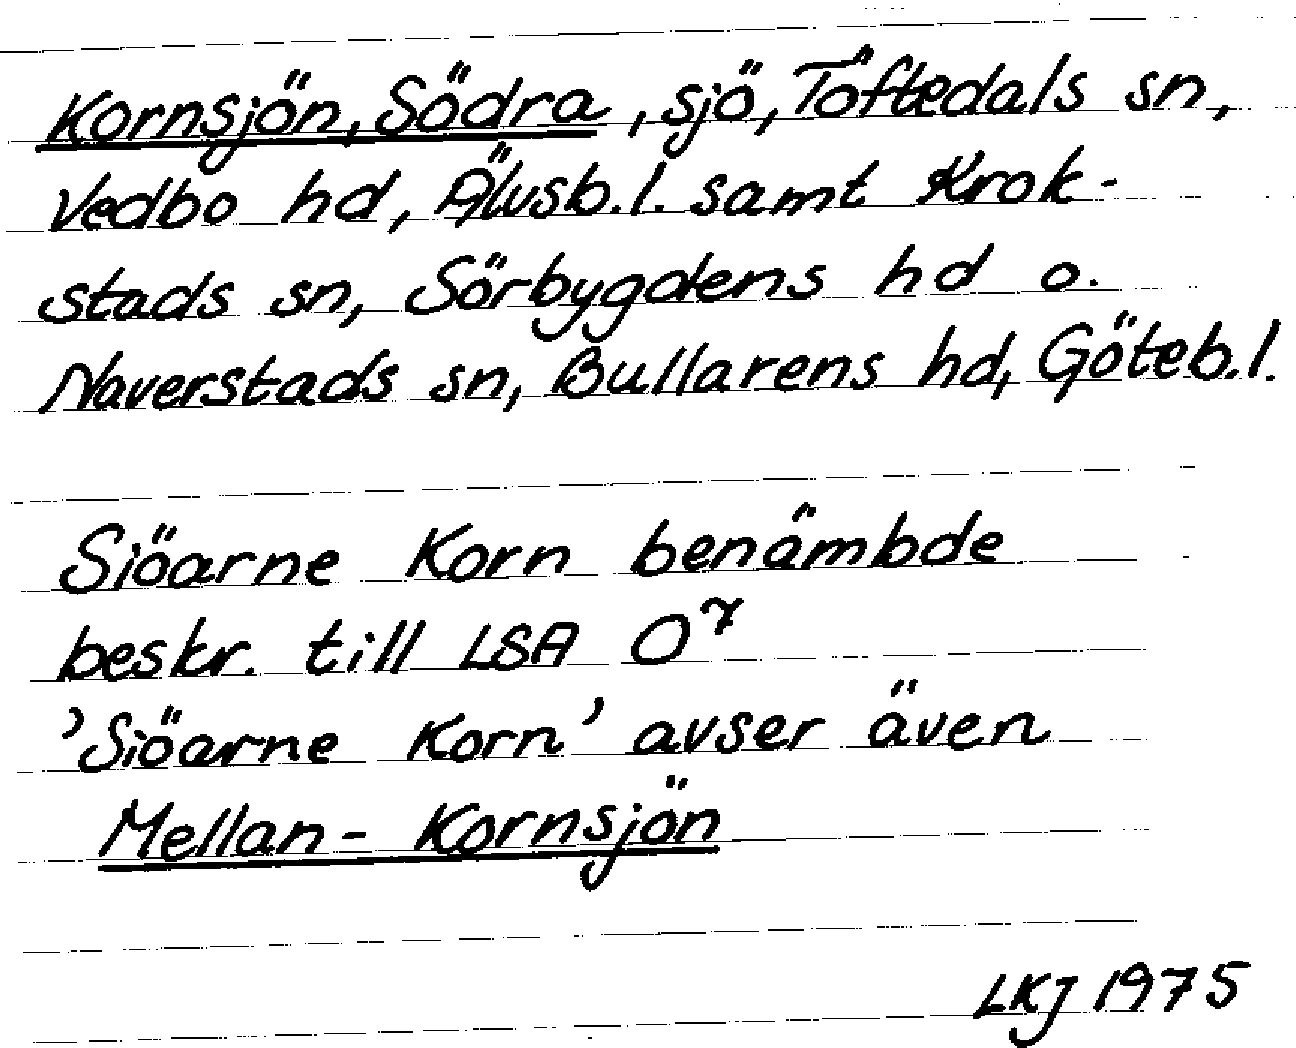 Kornsjön, Södra, sjö, Töftedals sn,
Vedbo hd, Älvsb.l. samt Krok-
stads sn, Sörbygdens hd o.
Naverstads sn, Bullarens hd, Göteb.l.
Siöarne Korn benämbde
beskr. till LSA O⁷
'Siöarne Korn' avser även
Mellan-Kornsjön
LKJ 1975